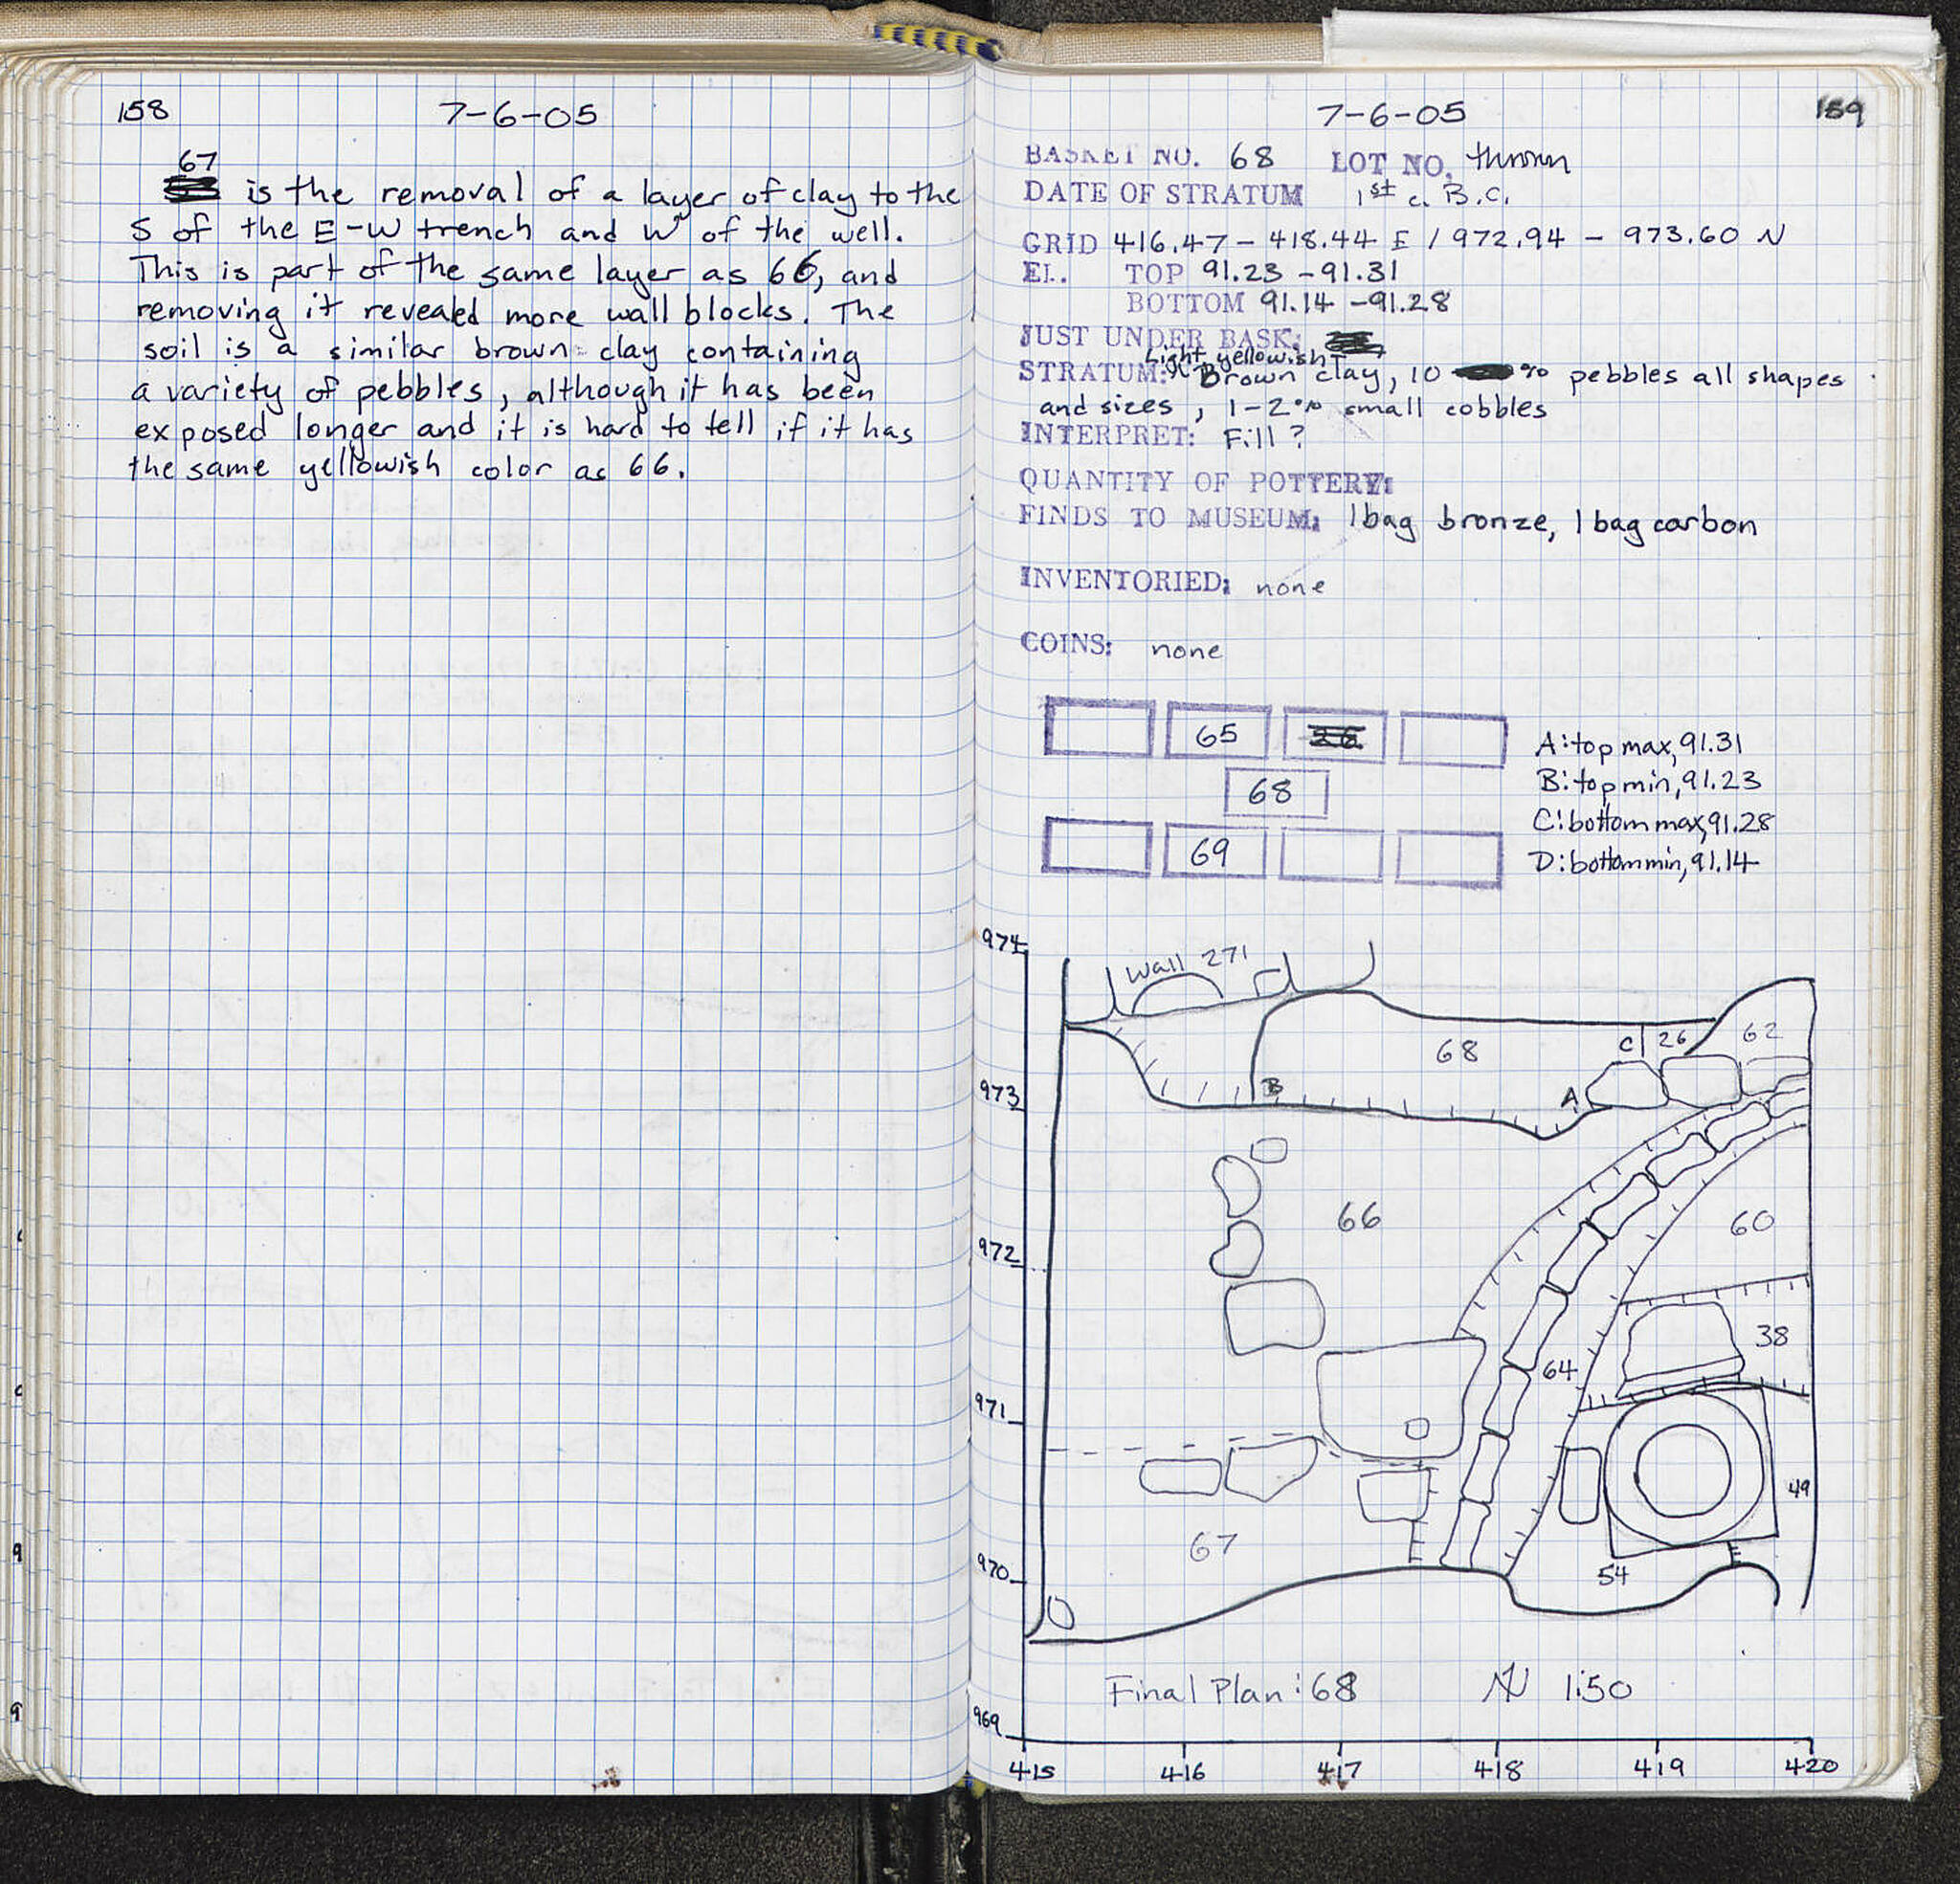 158
7-6-05
67
is the removal of a layer of clay to the
S of the E-W trench and W of the well.
This is part of the same layer as 66, and
removing it revealed more wall blocks. The
soil is a similar brown clay containing
a variety of pebbles, although it has been
exposed longer and it is hard to tell if it has
the same yellowish color as 66.
7-6-05
159
BASKET NO. 68 LOT NO. thrown
DATE OF STRATUM 1st c. B.C.
GRID 416.47 - 418.44 E / 972.94 - 973.60 N
EL. TOP 91.23 - 91.31
BOTTOM 91.14 - 91.28
JUST UNDER BASK:
Light yellowish
STRATUM: Brown clay, 10 % pebbles all shapes
and sizes, 1-2% small cobbles
INTERPRET: Fill?
QUANTITY OF POTTERY:
FINDS TO MUSEUM: 1 bag bronze, 1 bag carbon
INVENTORIED: none
COINS: none
65
68
69
A: top max, 91.31
B: top min, 91.23
C: bottom max, 91.28
D: bottom min, 91.14
974
Wall 271
C 26 62
68
973
B
A
66
60
972
38
64
971
49
67
970
54
Final Plan: 68 N 1:50
969
415 416 417 418 419 420